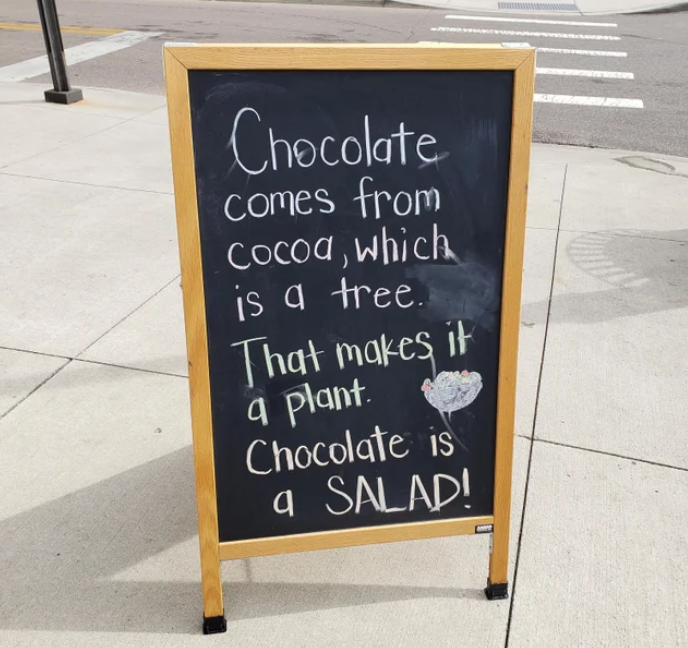 Chocolate
comes from
cocoa, which
is a tree.
That makes it
a plant.
Chocolate is
a SALAD!